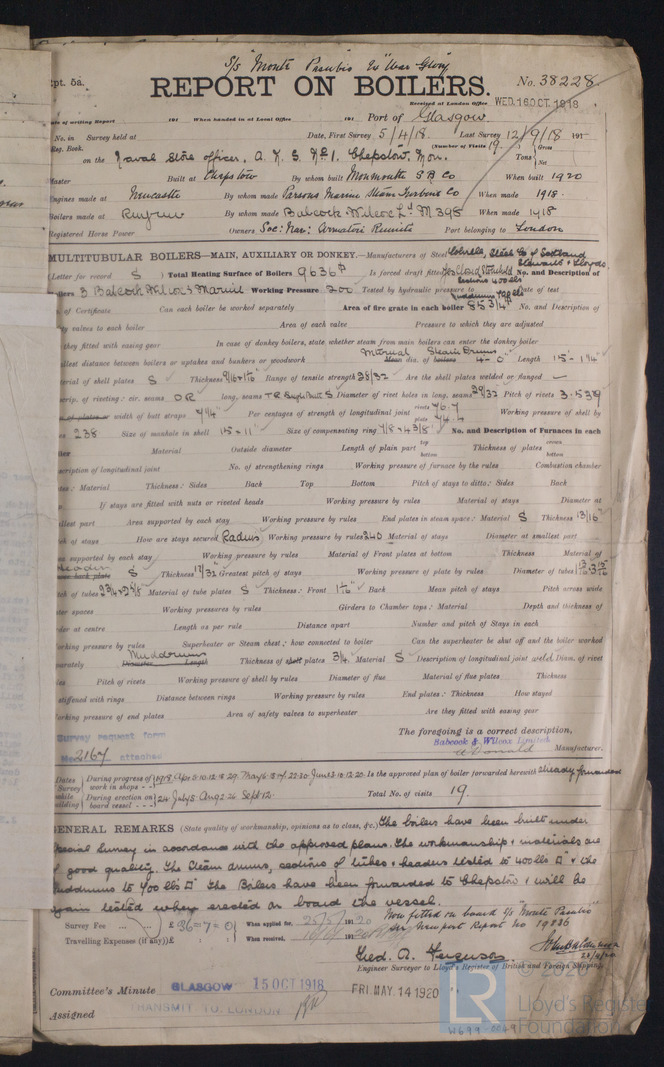 S/S "Monte Pasubio" Ex "War Glory"
Rpt. 5a.
REPORT ON BOILERS.
No. 38228
Received at London Office WED. 16 OCT. 1918
Date of writing Report 191 When handed in at Local Office 191 Port of Glasgow
No. in Survey held at Date, First Survey 5/4/18. Last Survey 12/9/18 191
Reg. Book. (Number of Visits 19) Gross
on the Naval Store officer, A. N. S. No 1, Chepstow, Mon. Tons Net
Master Built at Chepstow By whom built Monmouth S B Co When built 1920
Engines made at Newcastle By whom made Parsons Marine Steam Turbine Co When made 1918.
Boilers made at Renfrew By whom made Babcock & Wilcox Ld. M 398 When made 1918
Registered Horse Power Owners Soc: Naz: Armatori Reunite Port belonging to London
MULTITUBULAR BOILERS—MAIN, AUXILIARY OR DONKEY.—Manufacturers of Steel Colvilles, Steel Co of Scotland
Stewarts & Lloyds.
Letter for record S) Total Heating Surface of Boilers 9636 Is forced draft fitted Yes Closed Stokehold No. and Description of
Sections 400 lbs
Boilers 3 Babcock Wilcox Marine Working Pressure 200 Tested by hydraulic pressure to Muddrums 700 lbs Date of test
No. of Certificate Can each boiler be worked separately Area of fire grate in each boiler 85 3/4 No. and Description of
safety valves to each boiler Area of each valve Pressure to which they are adjusted
Are they fitted with easing gear In case of donkey boilers, state whether steam from main boilers can enter the donkey boiler
Smallest distance between boilers or uptakes and bunkers or woodwork Internal Steam Drums dia. of boilers 4-0" Length 15-1 3/4"
Material of shell plates S Thickness 9/16 + 1 1/16 Range of tensile strength 28/32 Are the shell plates welded or flanged —
Descrip. of riveting: cir. seams DR long. seams TR Dble Butt S Diameter of rivet holes in long. seams 29/32 Pitch of rivets 3.539
width of butt straps 7 3/4" Per centages of strength of longitudinal joint rivets 76.7 plate 74.4 Working pressure of shell by
rules 238 Size of manhole in shell 15 x 11" Size of compensating ring 7/8 x 4 3/8" No. and Description of Furnaces in each
boiler Material Outside diameter Length of plain part top bottom Thickness of plates crown bottom
Description of longitudinal joint No. of strengthening rings Working pressure of furnace by the rules Combustion chamber
plates: Material Thickness: Sides Back Top Bottom Pitch of stays to ditto: Sides Back
Top If stays are fitted with nuts or riveted heads Working pressure by rules Material of stays Diameter at
smallest part Area supported by each stay Working pressure by rules End plates in steam space: Material S Thickness 13/16"
Pitch of stays How are stays secured Radius Working pressure by rules 340 Material of stays Diameter at smallest part
Area supported by each stay Working pressure by rules Material of Front plates at bottom Thickness Material of
Headers
Lower back plate S Thickness 17/32" Greatest pitch of stays Working pressure of plate by rules Diameter of tubes 1 13/16 + 3 15/16
Pitch of tubes Material of tube plates S Thickness: Front 1 1/16 Back Mean pitch of stays Pitch across wide
water spaces Working pressures by rules Girders to Chamber tops: Material Depth and thickness of
girder at centre Length as per rule Distance apart Number and pitch of Stays in each
Working pressure by rules Superheater or Steam chest; how connected to boiler Can the superheater be shut off and the boiler worked
separately Muddrums Diameter Length Thickness of shell plates 3/4 Material S Description of longitudinal joint weld Diam. of rivet
holes Pitch of rivets Working pressure of shell by rules Diameter of flue Material of flue plates Thickness
If stiffened with rings Distance between rings Working pressure by rules End plates: Thickness How stayed
Working pressure of end plates Area of safety valves to superheater Are they fitted with easing gear
Survey request form
No. 2167 attached
The foregoing is a correct description,
Babcock & Wilcox Limited
A Donald Manufacturer.
Dates of Survey while building During progress of work in shops - - 1918 Apr 5.10.12.18.29. May 6.13.17.22.30 Jun 12.10.12.20. Is the approved plan of boiler forwarded herewith already forwarded
During erection on board vessel - - - 24 July 5 Aug 2.26 Sept 12. Total No. of visits 19.
GENERAL REMARKS (State quality of workmanship, opinions as to class, &c.) The boilers have been built under
special Survey in accordance with the approved plans. The workmanship & materials are
of good quality. The Steam drums, sections of tubes & headers tested to 400 lbs □" & the
muddrums to 700 lbs □" The Boilers have been forwarded to Chepstow & will be
again tested when erected on board the vessel.
Now fitted on board S/S "Monte Pasubio"
Survey Fee ... ... £ 36 = 7 = 0 When applied for, 25/5/1920 Newport Report No 19836
Travelling Expenses (if any) £ : : When received, 191
Geo. A. Ferguson.
23/4/20
Engineer Surveyor to Lloyd's Register of British and Foreign Shipping.
Committee's Minute GLASGOW 15 OCT 1918 FRI. MAY. 14 1920
Assigned TRANSMIT TO LONDON
© 2020
LR
Lloyd's Register
Foundation
W699-0049